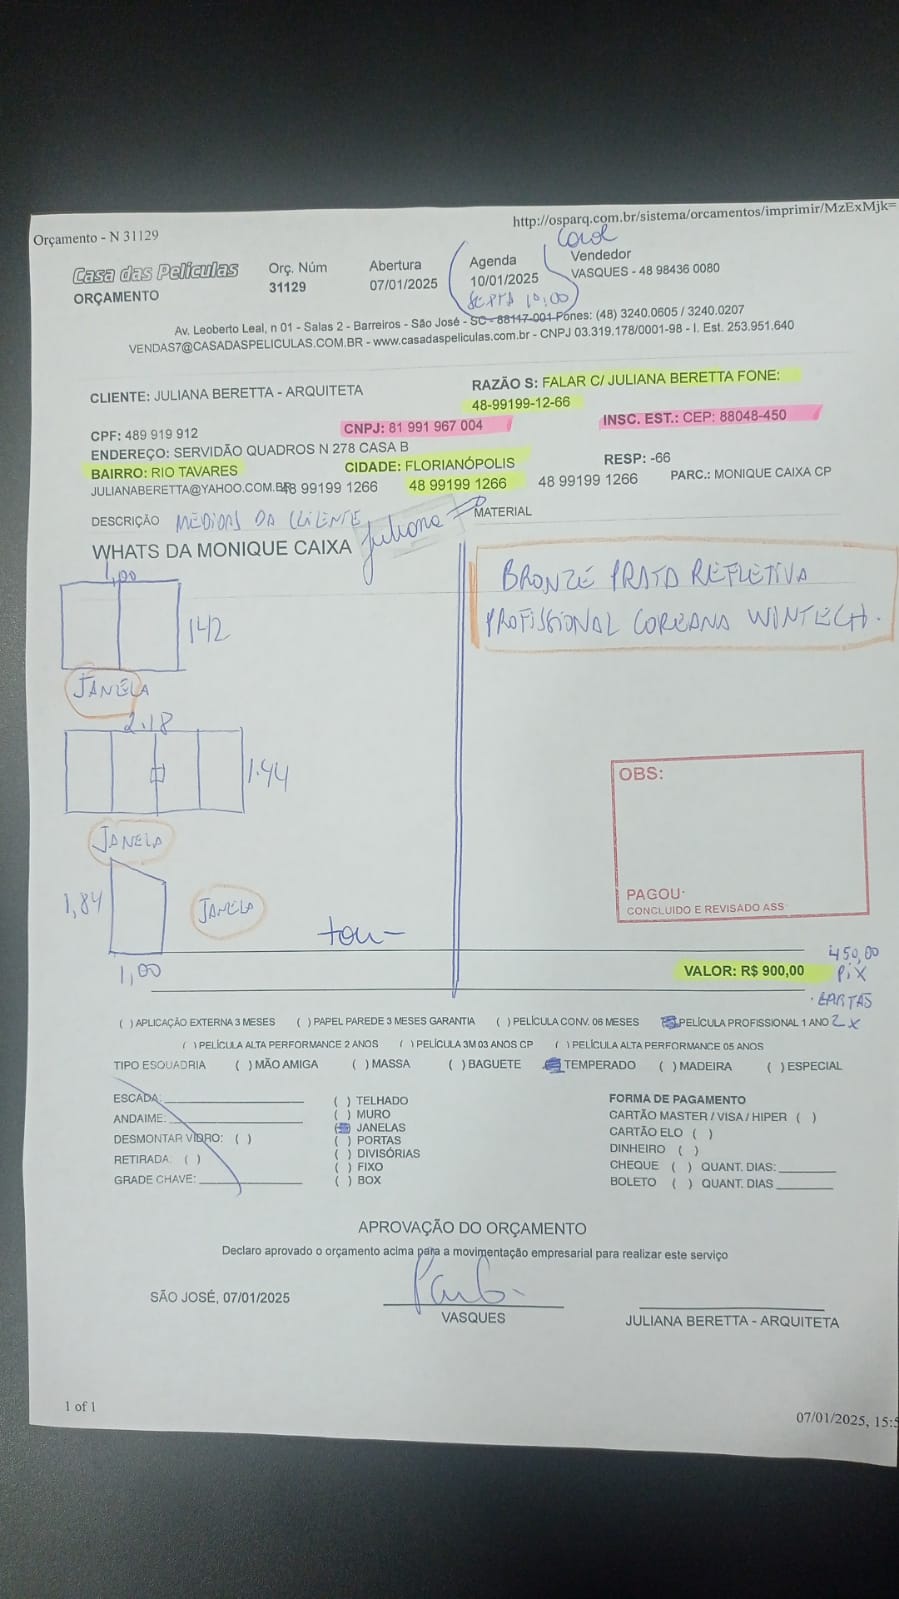 Orçamento - N 31129
http://osparq.com.br/sistema/orcamentos/imprimir/MzExMjk=
Casa das Películas
ORÇAMENTO
Orç. Núm
31129
Abertura
07/01/2025
Agenda
10/01/2025
10:00
Vendedor
VASQUES - 48 98436 0080
Av. Leoberto Leal, n 01 - Salas 2 - Barreiros - São José - SC - 88117-001 Fones: (48) 3240.0605 / 3240.0207
VENDAS7@CASADASPELICULAS.COM.BR - www.casadaspeliculas.com.br - CNPJ 03.319.178/0001-98 - I. Est. 253.951.640
CLIENTE: JULIANA BERETTA - ARQUITETA
RAZÃO S: FALAR C/ JULIANA BERETTA FONE:
48-99199-12-66
CPF: 489 919 912
CNPJ: 81 991 967 004
INSC. EST.: CEP: 88048-450
ENDEREÇO: SERVIDÃO QUADROS N 278 CASA B
BAIRRO: RIO TAVARES
CIDADE: FLORIANÓPOLIS
RESP: -66
JULIANABERETTA@YAHOO.COM.BR
48 99199 1266
48 99199 1266
48 99199 1266
PARC.: MONIQUE CAIXA CP
DESCRIÇÃO MEDIDAS DA CLIENTE
Juliana
MATERIAL
WHATS DA MONIQUE CAIXA
BRONZE PRATA REFLETIVA
PROFISSIONAL COREANA WINTECH.
1,00
142
JANELA
2.18
1.44
JANELA
1,84
JANELA
1,00
OBS:
PAGOU
CONCLUIDO E REVISADO ASS
VALOR: R$ 900,00
450,00
PIX
2X
( ) APLICAÇÃO EXTERNA 3 MESES ( ) PAPEL PAREDE 3 MESES GARANTIA ( ) PELÍCULA CONV. 06 MESES PELÍCULA PROFISSIONAL 1 ANO
( ) PELÍCULA ALTA PERFORMANCE 2 ANOS ( ) PELÍCULA 3M 03 ANOS CP ( ) PELÍCULA ALTA PERFORMANCE 05 ANOS
TIPO ESQUADRIA ( ) MÃO AMIGA ( ) MASSA ( ) BAGUETE TEMPERADO ( ) MADEIRA ( ) ESPECIAL
ESCADA:
ANDAIME:
DESMONTAR VIDRO: ( )
RETIRADA: ( )
GRADE CHAVE:
( ) TELHADO
( ) MURO
JANELAS
( ) PORTAS
( ) DIVISÓRIAS
( ) FIXO
( ) BOX
FORMA DE PAGAMENTO
CARTÃO MASTER / VISA / HIPER ( )
CARTÃO ELO ( )
DINHEIRO ( )
CHEQUE ( ) QUANT. DIAS:
BOLETO ( ) QUANT. DIAS
APROVAÇÃO DO ORÇAMENTO
Declaro aprovado o orçamento acima para a movimentação empresarial para realizar este serviço
SÃO JOSÉ, 07/01/2025
VASQUES
JULIANA BERETTA - ARQUITETA
1 of 1
07/01/2025, 15:5